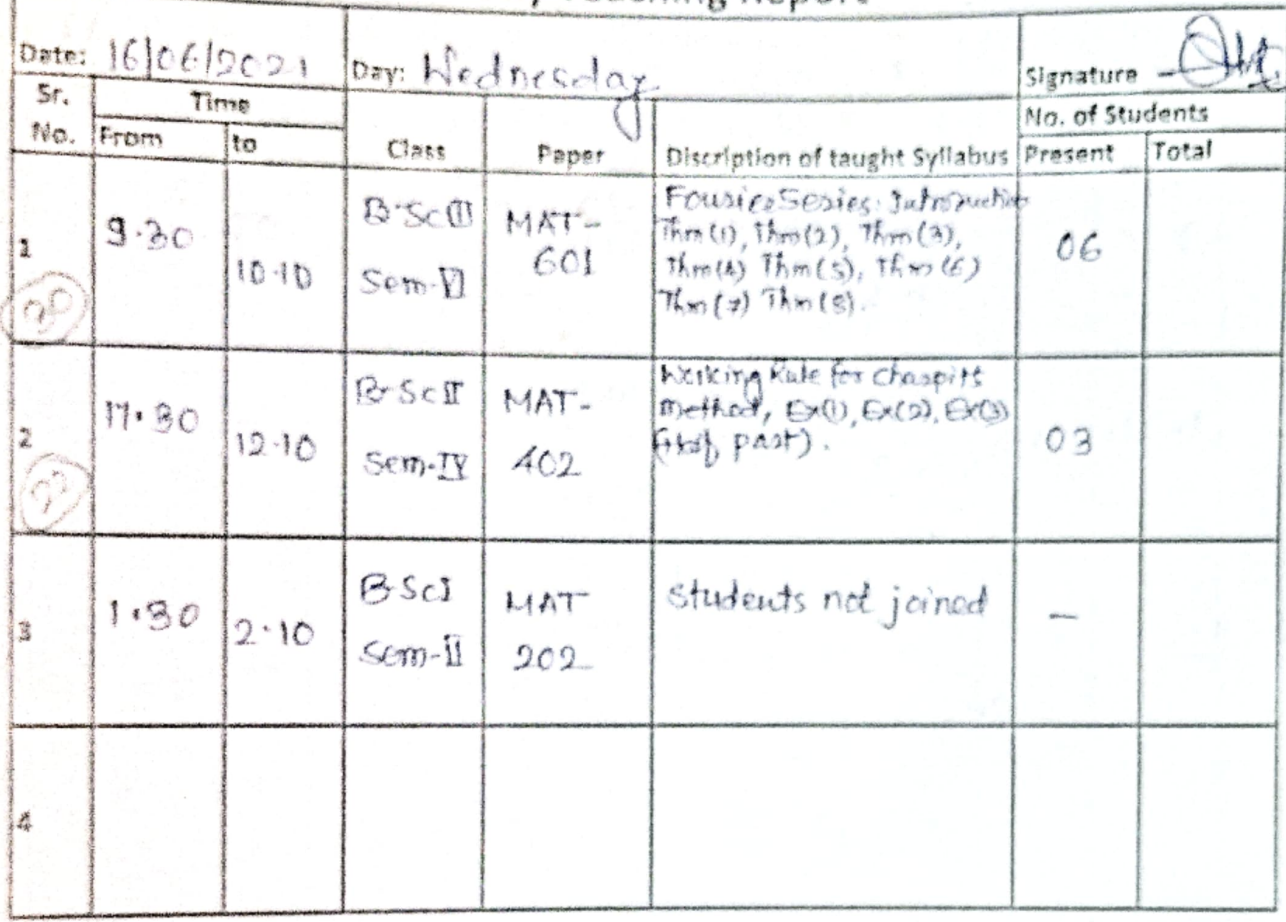 Teaching Report
Date: 16/06/2021 Day: Wednesday Signature
Sr. No. Time Class Paper Discription of taught Syllabus No. of Students
From to Present Total
1 9.30 10.10 B.Sc III Sem-VI MAT-601
Fourier Series: Introduction
Thm(1), Thm(2), Thm(3),
Thm(4) Thm(5), Thm(6)
Thm(7) Thm(8).
06
2 11.30 12.10 B.Sc II Sem-IV MAT-402
Working Rule for Charpits
method, Ex(1), Ex(2), Ex(3)
(Half part).
03
3 1.30 2.10 B.Sc I Sem-II MAT 202
Students not joined
—
4